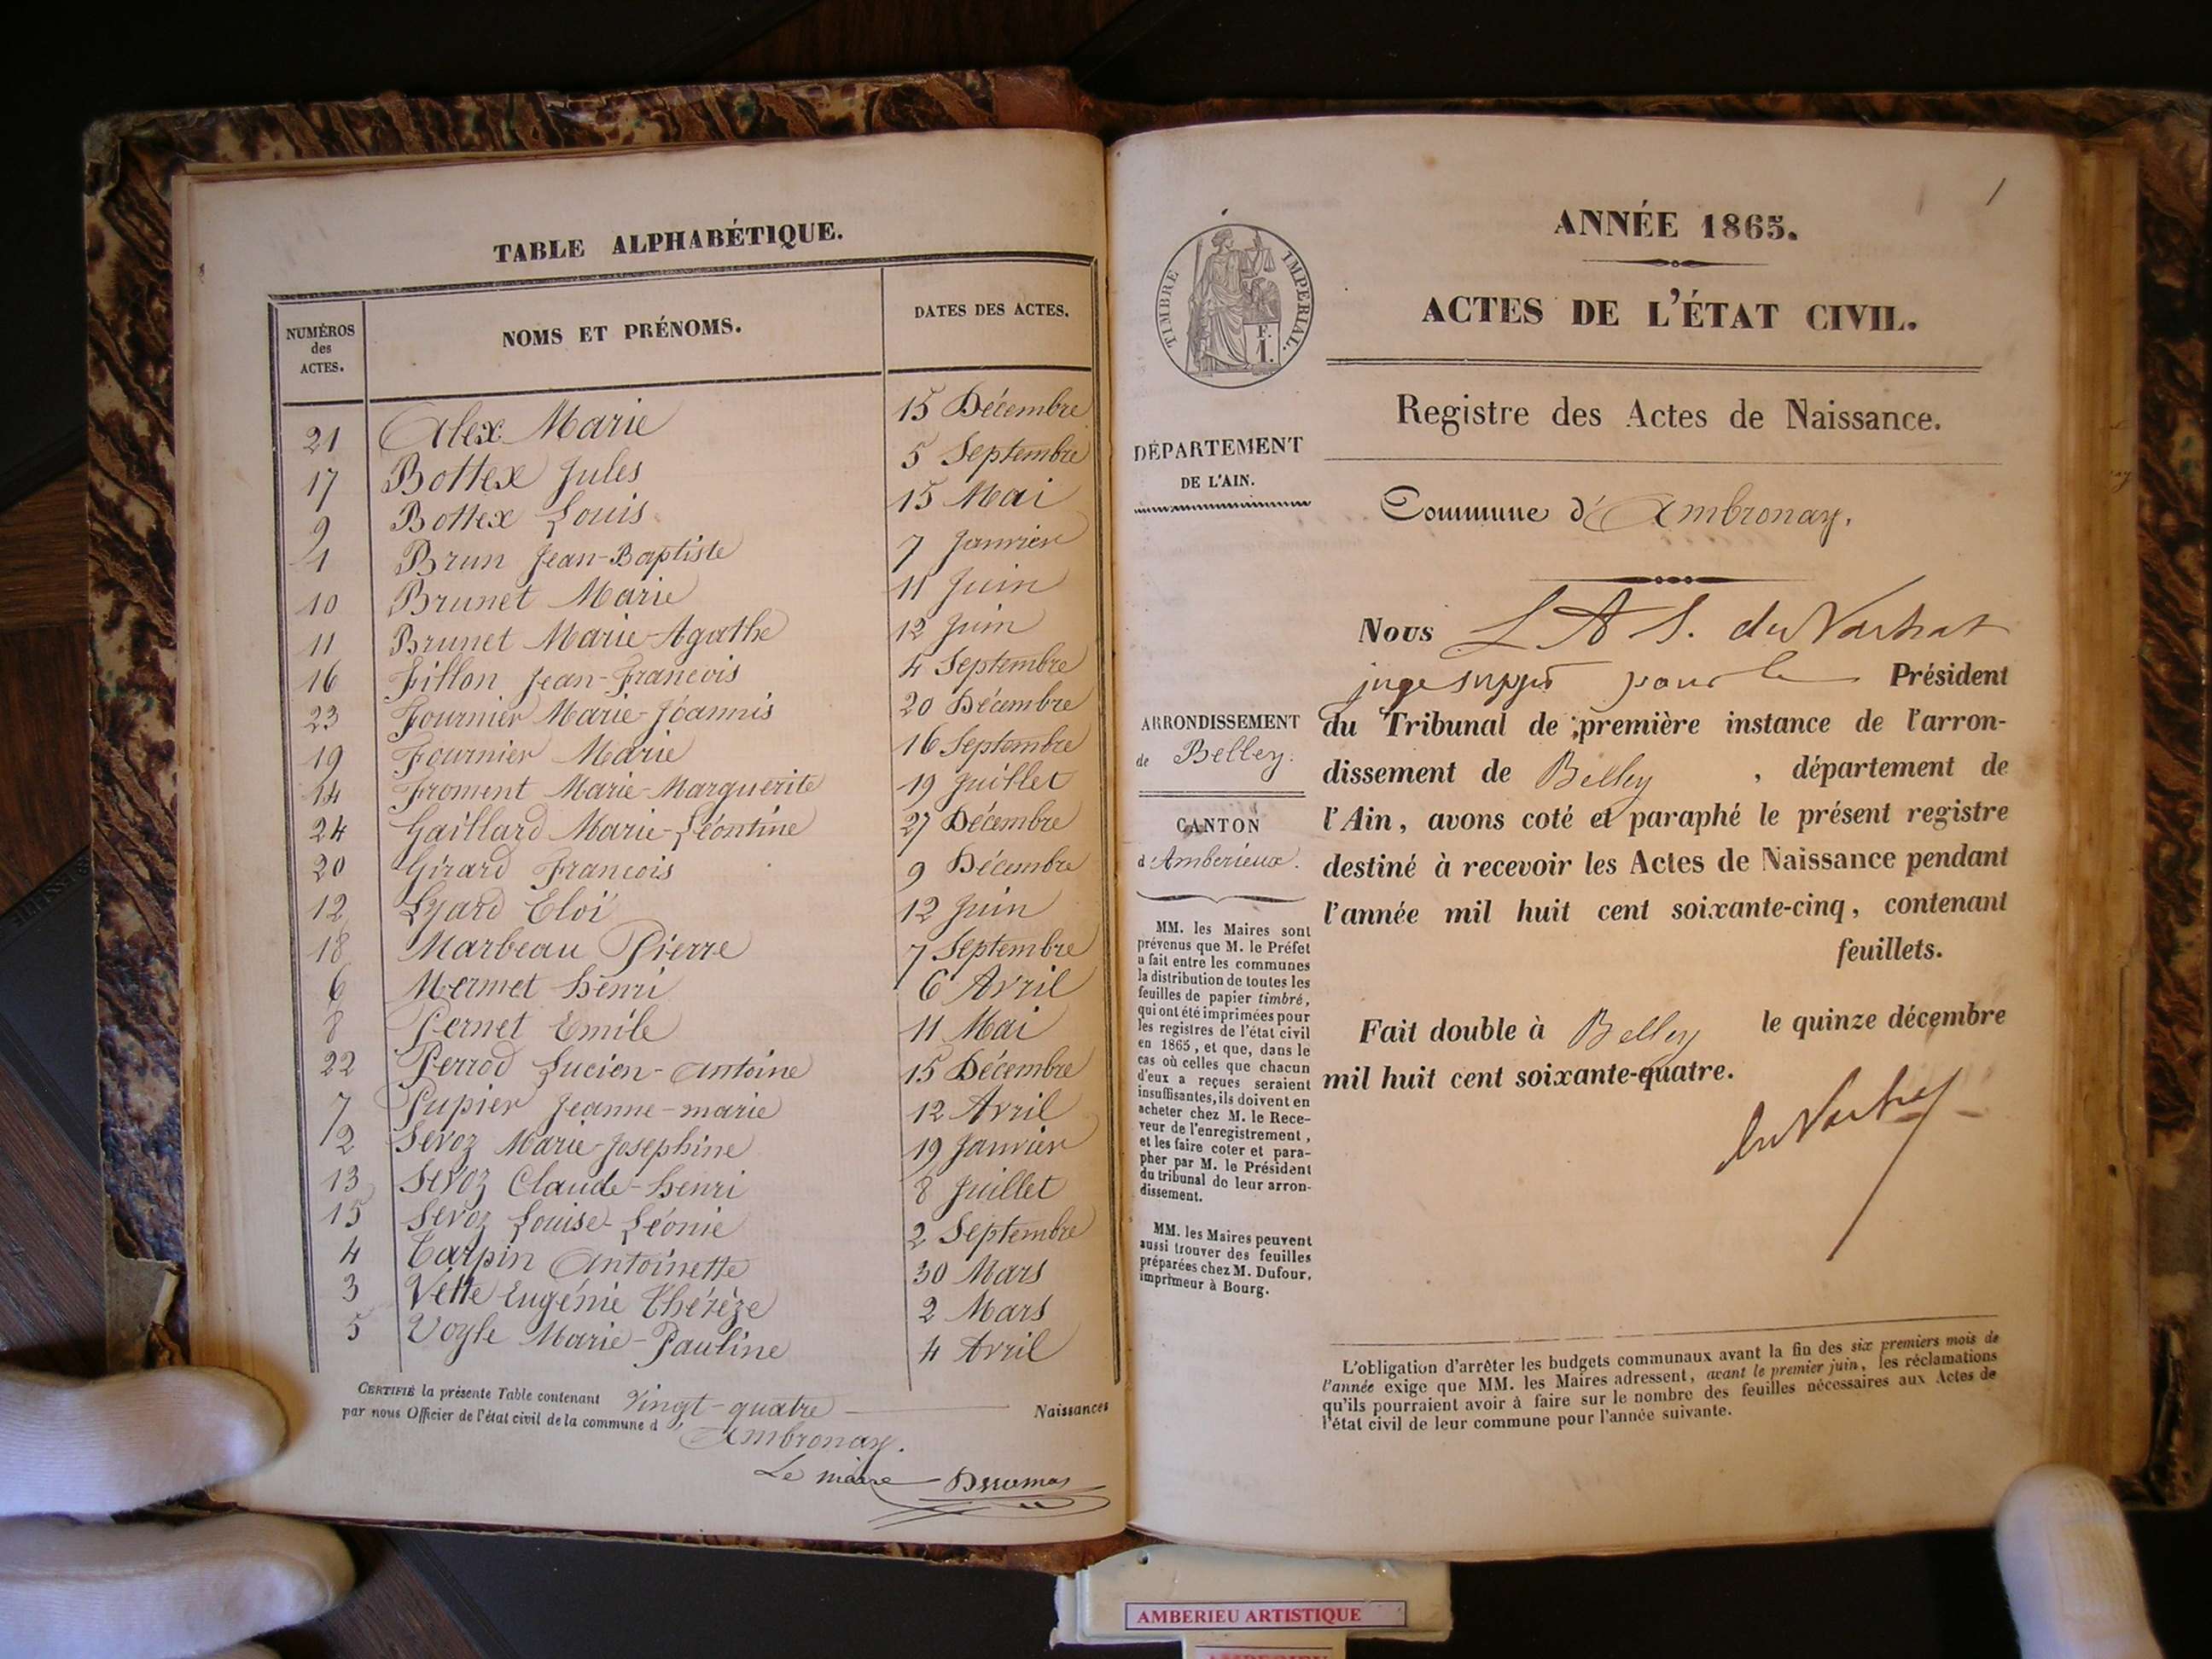 TABLE ALPHABÉTIQUE.
NUMÉROS
des
ACTES.
NOMS ET PRÉNOMS.
DATES DES ACTES.
21 Alex Marie 15 Décembre
17 Bottex Jules 5 Septembre
9 Bottex Louis 15 Mai
1 Brun Jean-Baptiste 7 Janvier
10 Brunet Marie 11 Juin
11 Brunet Marie-Agathe 12 Juin
16 Fillon Jean-Francois 4 Septembre
23 Fournier Marie-Joannis 20 Décembre
19 Fournier Marie 16 Septembre
14 Froment Marie-Marguerite 19 Juillet
24 Gaillard Marie-Léontine 27 Décembre
20 Girard Francois 9 Décembre
12 Lyard Eloi 12 Juin
18 Marbeau Pierre 7 Septembre
6 Mermet henri 6 Avril
8 Pernet Emile 11 Mai
22 Perrod Lucien-Antoine 15 Décembre
7 Pupier Jeanne-marie 12 Avril
2 Sevoz Marie-Josephine 19 Janvier
13 Sevoz Claude-henri 8 Juillet
15 Sevoz Louise-Léonie 2 Septembre
4 Tarpin Antoinette 30 Mars
3 Vette Eugénie Thérèze 2 Mars
5 Voyle Marie-Pauline 4 Avril
CERTIFIÉ la présente Table contenant Vingt-quatre Naissances
par nous Officier de l'état civil de la commune d'Ambronay.
Le maire
TIMBRE IMPERIAL.
F.
1.
DÉPARTEMENT
DE L'AIN.
ARRONDISSEMENT
de Belley.
CANTON
d'Amberieux.
MM. les Maires sont
prévenus que M. le Préfet
a fait entre les communes
la distribution de toutes les
feuilles de papier timbré,
qui ont été imprimées pour
les registres de l'état civil
en 1865, et que, dans le
cas où celles que chacun
d'eux a reçues seraient
insuffisantes, ils doivent en
acheter chez M. le Rece-
veur de l'enregistrement,
et les faire coter et para-
pher par M. le Président
du tribunal de leur arron-
dissement.
MM. les Maires peuvent
aussi trouver des feuilles
préparées chez M. Dufour,
imprimeur à Bourg.
1
ANNÉE 1865.
ACTES DE L'ÉTAT CIVIL.
Registre des Actes de Naissance.
Commune d'Ambronay.
Nous L A S. du Vachat
juge supp pour le Président
du Tribunal de première instance de l'arron-
dissement de Belley, département de
l'Ain, avons coté et paraphé le présent registre
destiné à recevoir les Actes de Naissance pendant
l'année mil huit cent soixante-cinq, contenant
feuillets.
Fait double à Belley le quinze décembre
mil huit cent soixante-quatre.
du Vachat
L'obligation d'arrêter les budgets communaux avant la fin des six premiers mois de
l'année exige que MM. les Maires adressent, avant le premier juin, les réclamations
qu'ils pourraient avoir à faire sur le nombre des feuilles nécessaires aux Actes de
l'état civil de leur commune pour l'année suivante.
AMBERIEU ARTISTIQUE